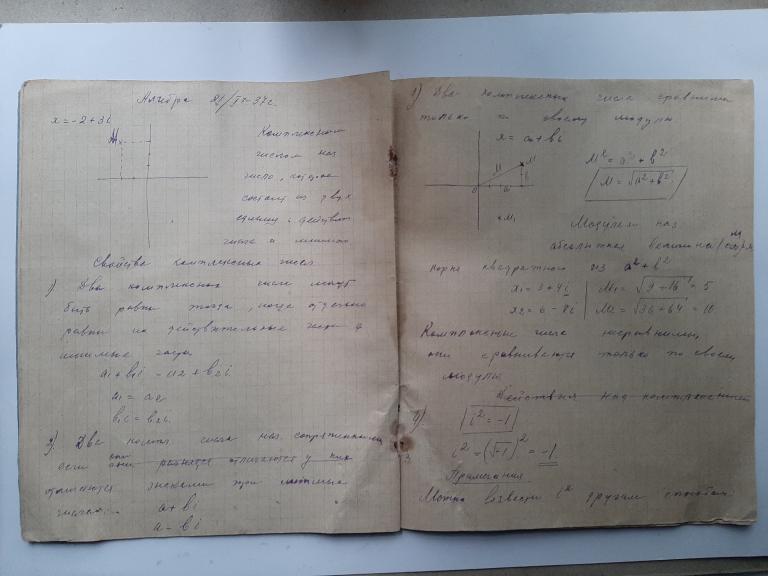 Алгебра 21/IX-37г.
x = -2 + 3i
M
Комплексным
числом наз
число, которое
состоит из двух
единиц: действит
числа и мнимого
Свойства комплексных чисел
1) Два комплексных числа могут
быть равны тогда, когда отдельно
равны их действительные части и
мнимые части
a₁ + b₁i = a₂ + b₂i
a₁ = a₂
b₁i = b₂i
2). Два компл. числа наз. сопряженными,
если они разнятся отличаются у них
отличаются знаками при мнимые
числах.
a + bi
a - bi
3) Два комплексных числа сравнимы
только по своему модулю
x = a + bi
M M
0 a b
M₁
M² = a² + b²
M = √a² + b²
Модулем наз
абсолютная величина
корня квадратного из a² + b²
x₁ = 3 + 4i M₁ = √9 + 16 = 5
x₂ = 6 - 8i M₂ = √36 + 64 = 10
Комплексные числа несравнимы,
они сравниваются только по своему
модулю
Действия над комплексными
i² = -1
i² = (√-1)² = -1
Примечания
Можно взвести i² другим способом